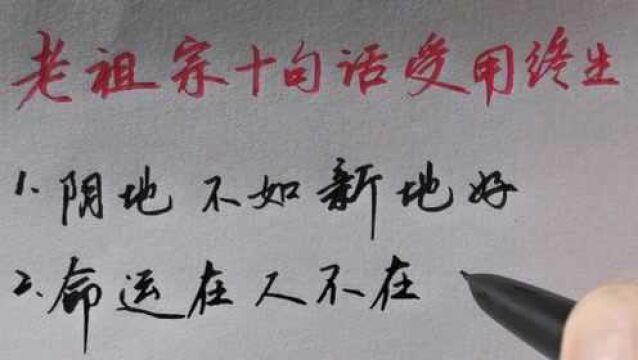 老祖宗十句话受用终生
1.阴地不如新地好
2.命运在人不在